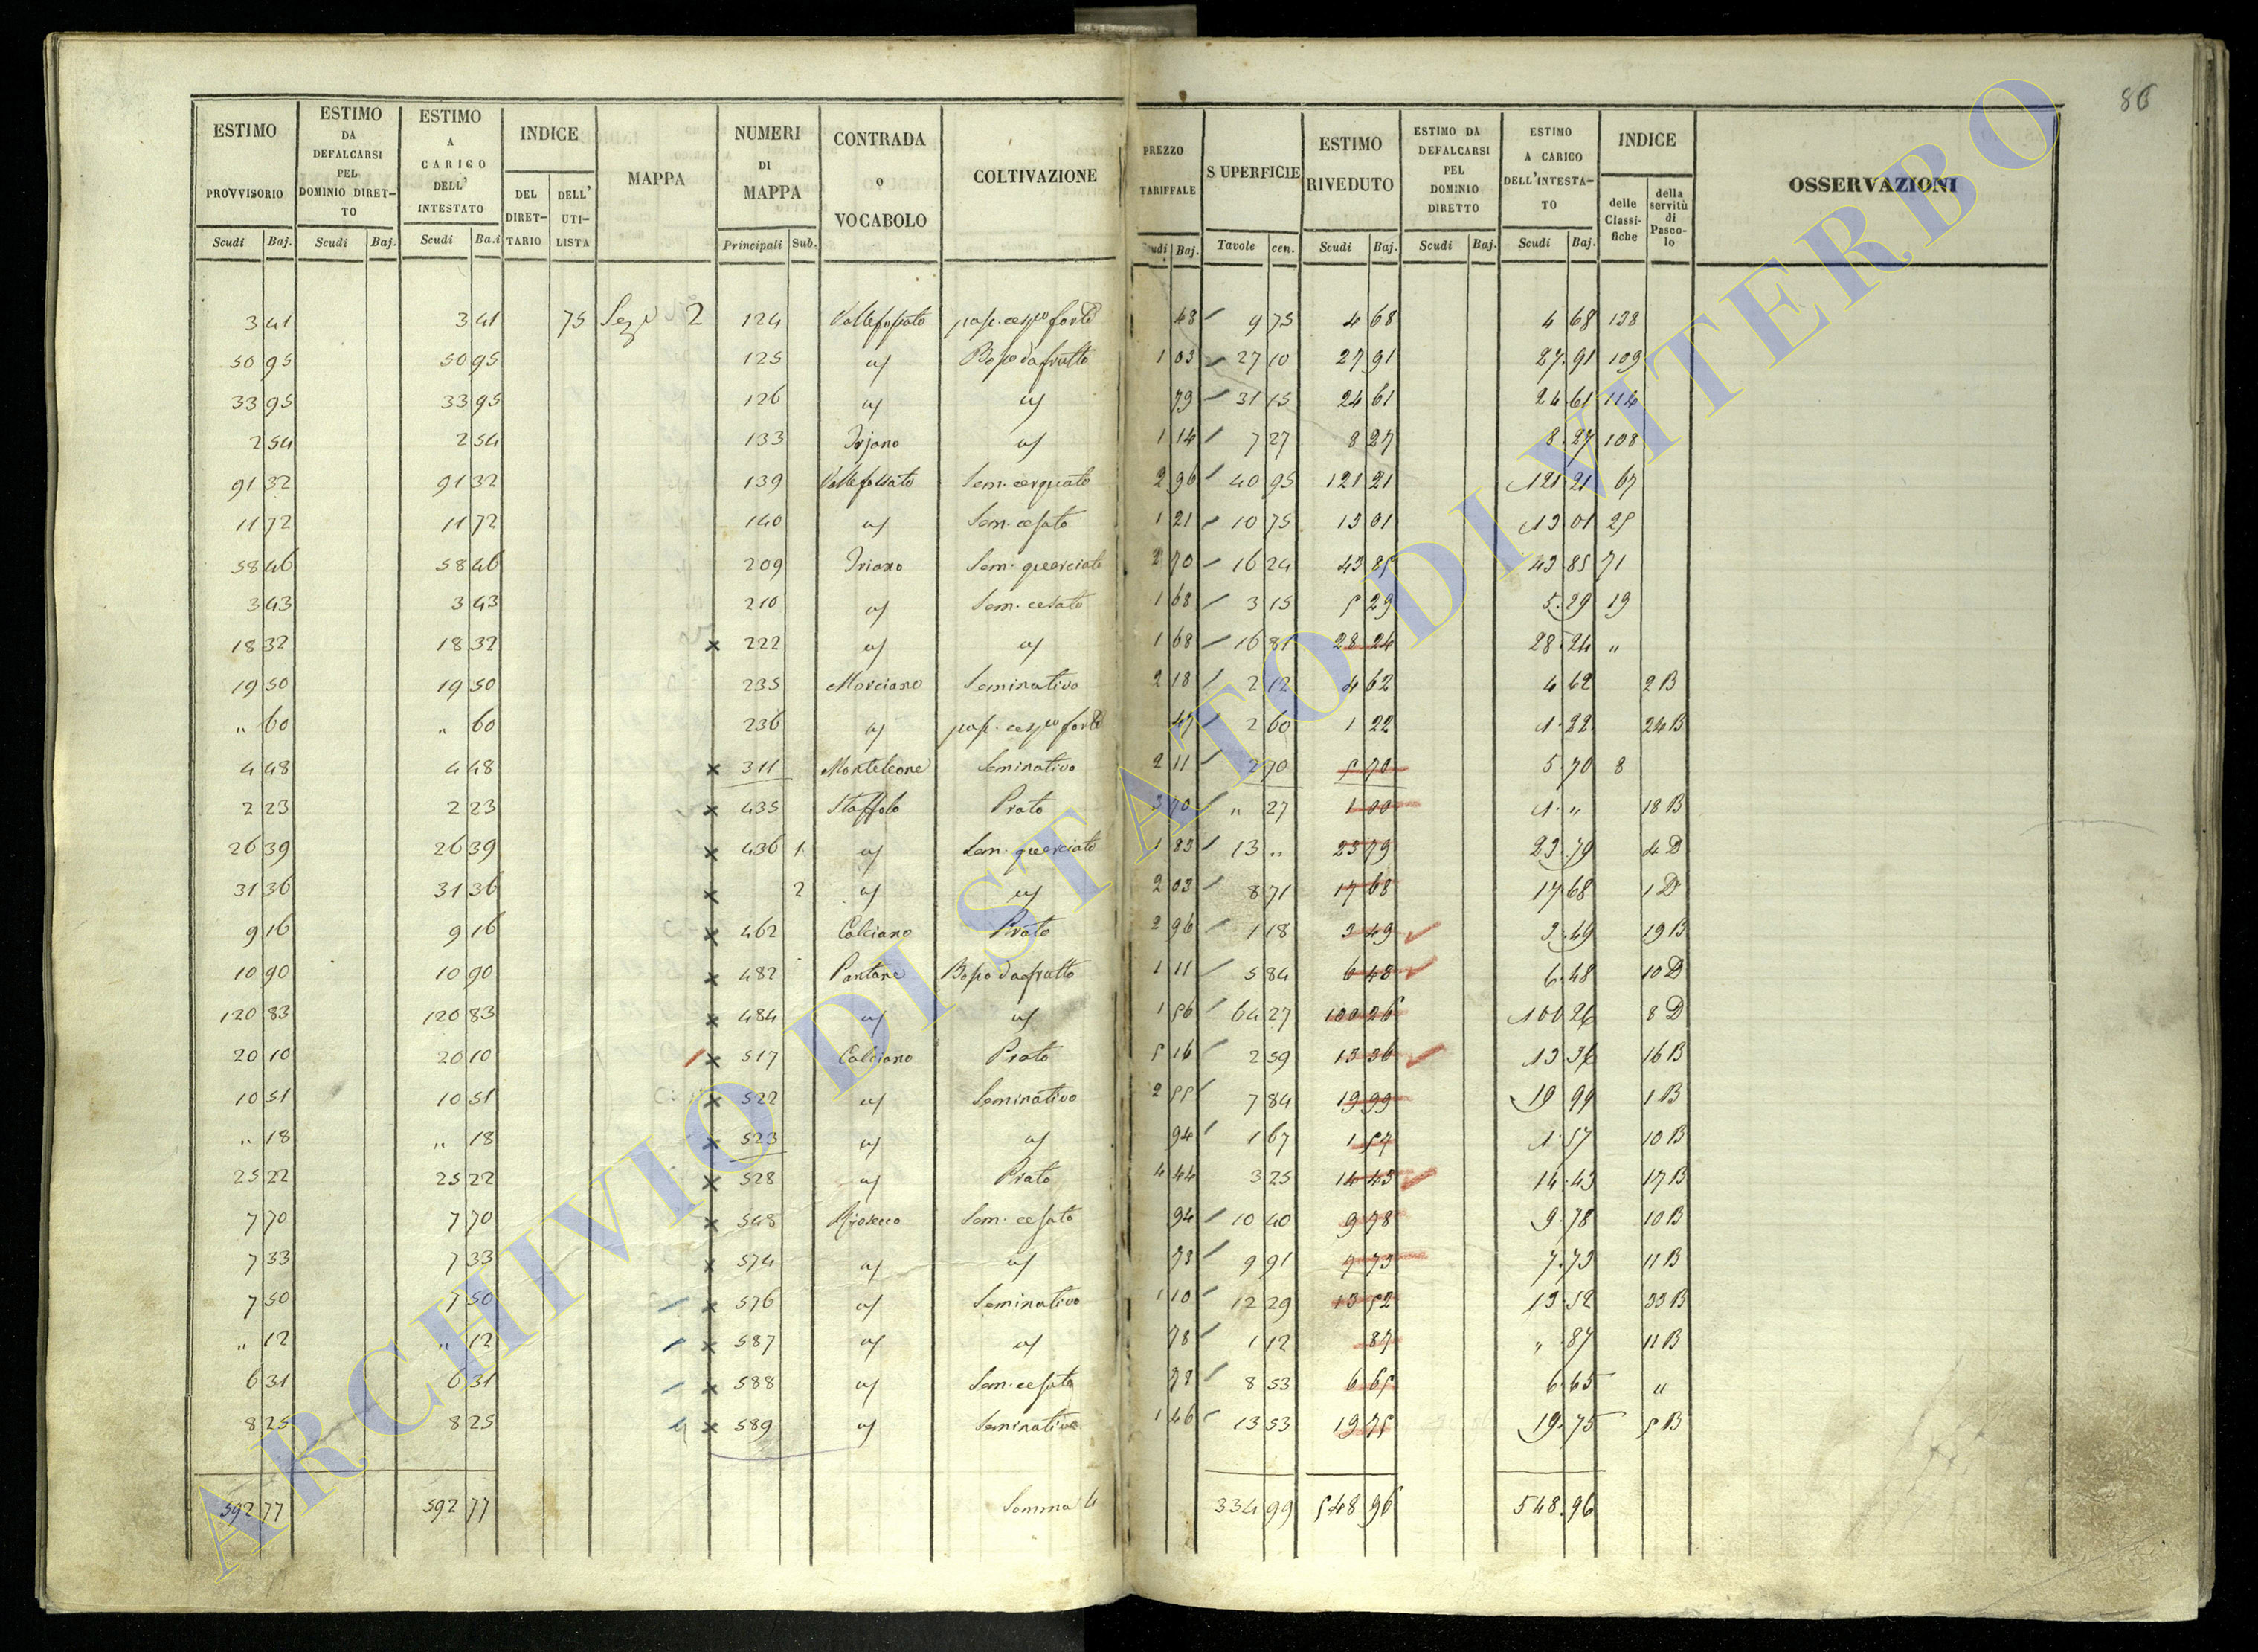 86
ESTIMO PROVVISORIO Scudi Baj. | ESTIMO DA DEFALCARSI PEL DOMINIO DIRETTO Scudi Baj. | ESTIMO A CARICO DELL' INTESTATO Scudi Ba.i | INDICE DEL DIRETTARIO DELL' UTILISTA | MAPPA | NUMERI DI MAPPA Principali Sub. | CONTRADA O VOCABOLO | COLTIVAZIONE | PREZZO TARIFFALE Scudi Baj. | SUPERFICIE Tavole cen. | ESTIMO RIVEDUTO Scudi Baj. | ESTIMO DA DEFALCARSI PEL DOMINIO DIRETTO Scudi Baj. | ESTIMO A CARICO DELL'INTESTATO Scudi Baj. | INDICE delle Classifiche della servitù di Pascolo | OSSERVAZIONI
3 41 3 41 75 Sez.e 2 124 Vallefossato pas. cesp.o forte 48 9 75 4 68 4 68 138
50 95 50 95 125 id Bosco da frutto 1 03 27 10 27 91 27.91 109
33 95 33 95 126 id id 79 31 15 24 61 24.61 114
2 54 2 54 133 Irjano id 1 14 7 27 8 27 8.27 108
91 32 91 32 139 Vallefossato Sem. cerquato 2 96 40 95 121 21 121.21 67
11 72 11 72 140 id Sem. cesato 1 21 10 75 13 01 13 01 25
58 46 58 46 209 Iriano Sem. querciato 2 70 16 24 43 85 43.85 71
3 43 3 43 210 id Sem. cesato 1 68 3 15 5 29 5.29 19
18 32 18 32 x 222 id id 1 68 16 81 28 24 28.24 "
19 50 19 50 235 Morciano Seminativo 2 18 2 12 4 62 4 62 2 B
" 60 " 60 236 id pas. cesp.o forte 47 2 60 1 22 1.22 24 B
4 48 4 48 x 311 Monteleone Seminativo 2 11 2 70 5 70 5.70 8
2 23 2 23 x 435 Staffolo Prato 3 70 " 27 1 00 1." 18 B
26 39 26 39 x 436 1 id Sem. querciato 1 83 13 " 23 79 23.79 4 D
31 36 31 36 x 2 id id 2 03 8 71 17 68 17.68 1 D
9 16 9 16 x 462 Calciano Prato 2 96 1 18 3 49 3.49 19 B
10 90 10 90 x 482 Pantane Bosco da frutto 1 11 5 84 6 48 6.48 10 D
120 83 120 83 x 484 id id 1 56 64 27 100 26 100 26 8 D
20 10 20 10 x 517 Calciano Prato 5 16 2 59 13 36 13.36 16 B
10 51 10 51 x 522 id Seminativo 2 55 7 84 19 99 19 99 1 B
" 18 " 18 x 523 id id 94 1 67 1 57 1.57 10 B
25 22 25 22 x 528 id Prato 4 44 3 25 14 43 14.43 17 B
7 70 7 70 x 548 Sem. cesato 94 10 40 9 78 9.78 10 B
7 33 7 33 x 574 id id 78 9 91 7 73 7.73 11 B
7 50 7 50 x 576 id Seminativo 1 10 12 29 13 52 13.52 33 B
" 12 " 12 x 587 id id 78 1 12 87 " .87 11 B
6 31 6 31 x 588 id Sem. cesato 78 8 53 6 65 6.65 "
8 25 8 25 x 589 id Seminativo 1 46 13 53 19 75 19.75 5 B
592 77 592 77 Somma 334 99 548 96 548.96
ARCHIVIO DI STATO DI VITERBO